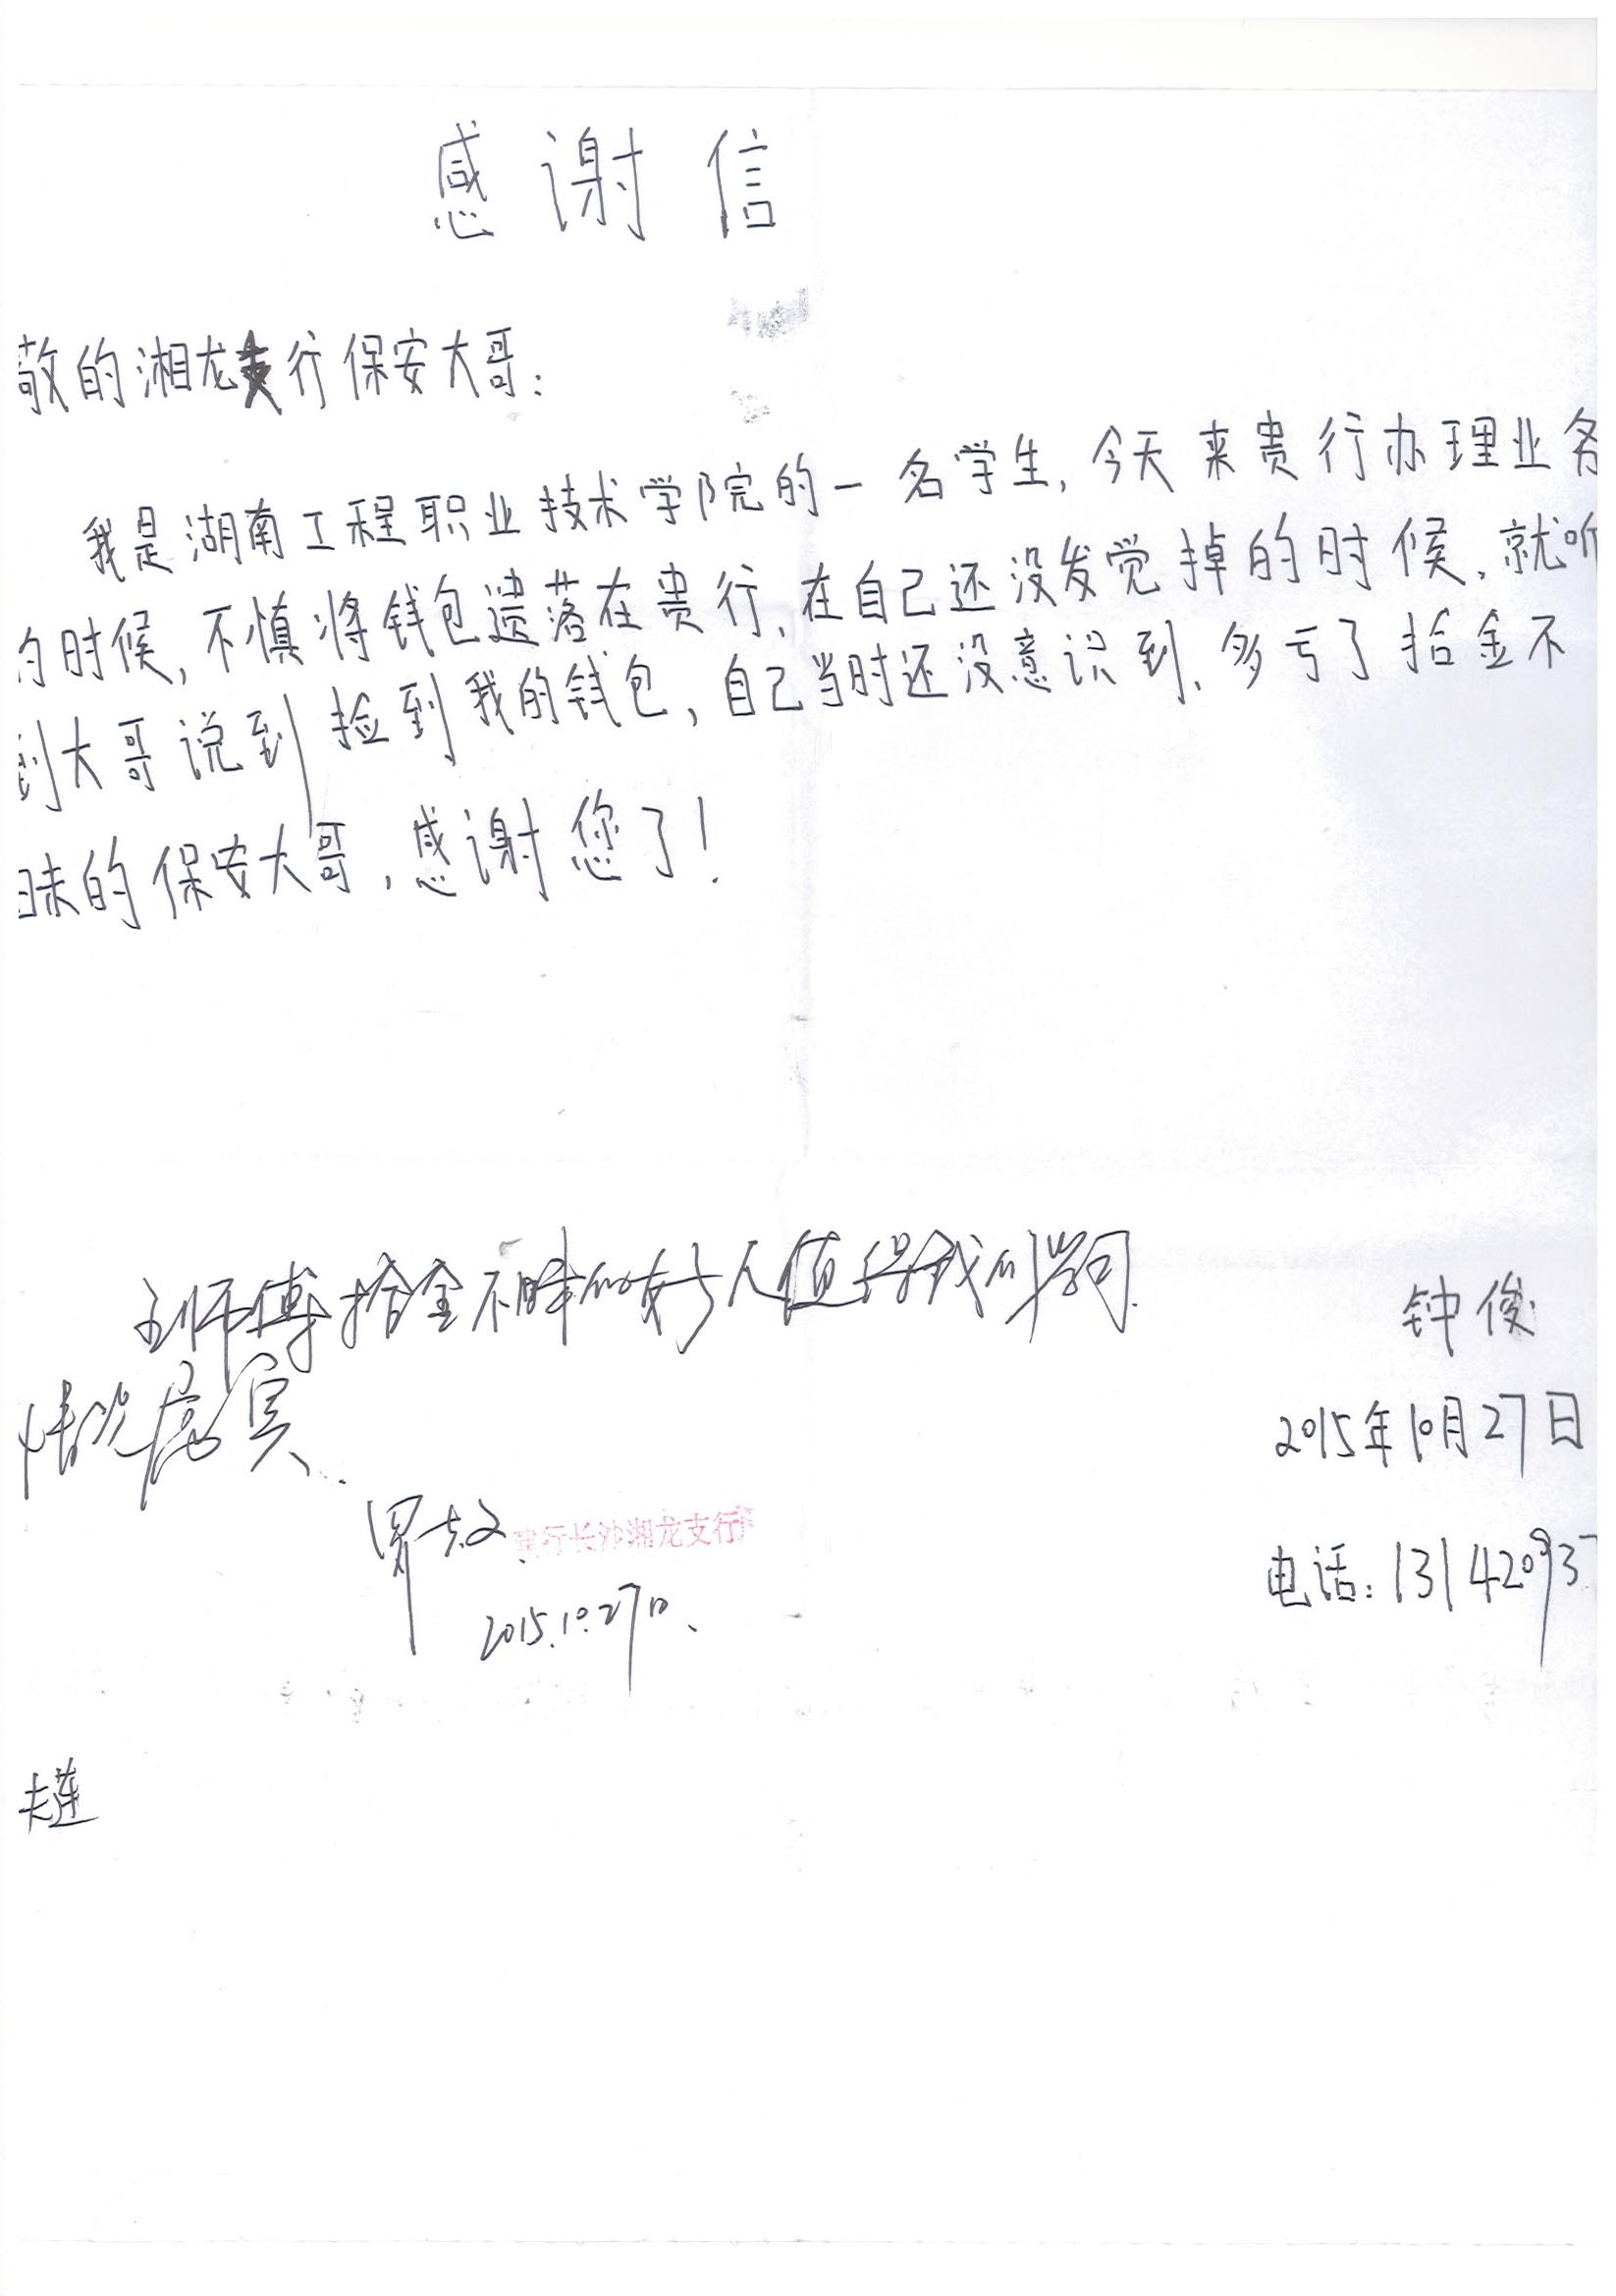 感谢信
敬的湘龙支行保安大哥:
我是湖南工程职业技术学院的一名学生,今天来贵行办理业务
的时候,不慎将钱包遗落在贵行、在自己还没发觉掉的时候,就听
到大哥说到捡到我的钱包,自己当时还没意识到、多亏了拾金不
昧的保安大哥,感谢您了!
师傅拾金不昧的好人值得我们学习.
情况属实.
钟俊
2015年10月27日
建行长沙湘龙支行
2015.10.27日、
电话:131420937